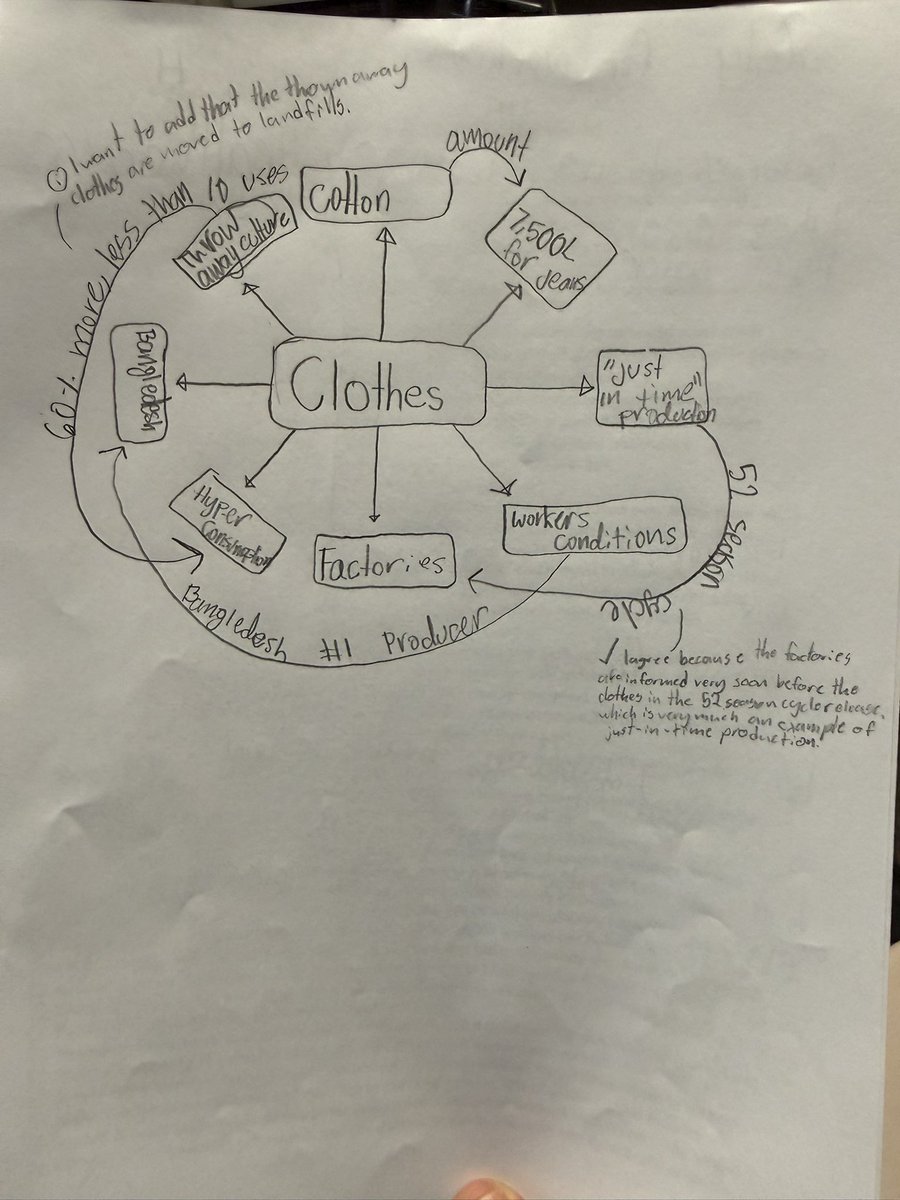 I want to add that the thrown away
clothes are moved to landfills.
60% more, less than 10 uses
Throw
away culture
Cotton
amount
7,500L
for Jeans
Bangledesh
Clothes
"Just
in time"
production
Hyper
Consumption
Factories
Workers
conditions
52 section
cycle
Bangledesh #1 Producer
✓ I agree because the factories
are informed very soon before the
clothes in the 52 season cycle release,
which is very much an example of
just-in-time production.